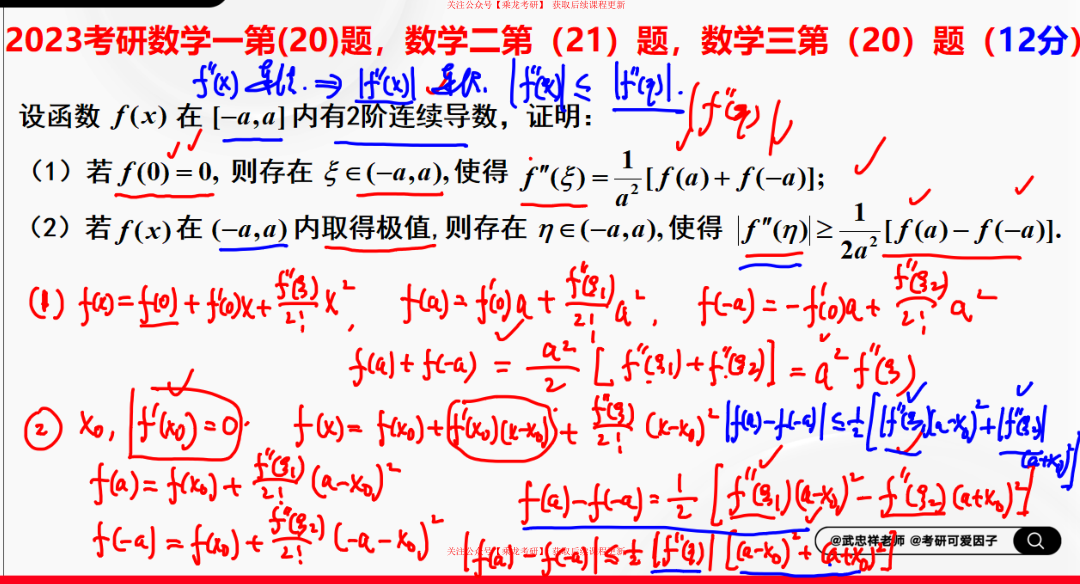 关注公众号【乘龙考研】 获取后续课程更新
2023考研数学一第(20)题，数学二第（21）题，数学三第（20）题（12分）
f''(x) 连续. ⇒ |f''(x)| 连续. |f''(x)| ≤ |f''(η)|.
设函数 f(x) 在 [−a,a] 内有2阶连续导数，证明：
|f''(η)|
（1）若 f(0) = 0, 则存在 ξ∈(−a,a), 使得 f''(ξ) = 1/a² [f(a) + f(−a)];
（2）若 f(x) 在 (−a,a) 内取得极值, 则存在 η∈(−a,a), 使得 |f''(η)| ≥ 1/2a² [f(a) − f(−a)].
(1) f(x) = f(0) + f'(0)x + f''(ξ)/2! x², f(a) = f'(0)a + f''(ξ₁)/2! a², f(-a) = -f'(0)a + f''(ξ₂)/2! a²
f(a) + f(-a) = a²/2 [f''(ξ₁) + f''(ξ₂)] = a² f''(ξ)
② x₀, f'(x₀) = 0. f(x) = f(x₀) + f'(x₀)(x-x₀) + f''(ξ)/2! (x-x₀)² |f(a)-f(-a)| ≤ 1/2 [|f''(ξ₁)|(a-x₀)² + |f''(ξ₂)|(a+x₀)²]
f(a) = f(x₀) + f''(ξ₁)/2! (a-x₀)²
f(a) - f(-a) = 1/2 [f''(ξ₁)(a-x₀)² - f''(ξ₂)(a+x₀)²]
f(-a) = f(x₀) + f''(ξ₂)/2! (-a-x₀)²
@武忠祥老师 @考研可爱因子
关注公众号【乘龙考研】 获取后续课程更新
|f(a) - f(-a)| ≤ 1/2 |f''(η)| [(a-x₀)² + (a+x₀)²]